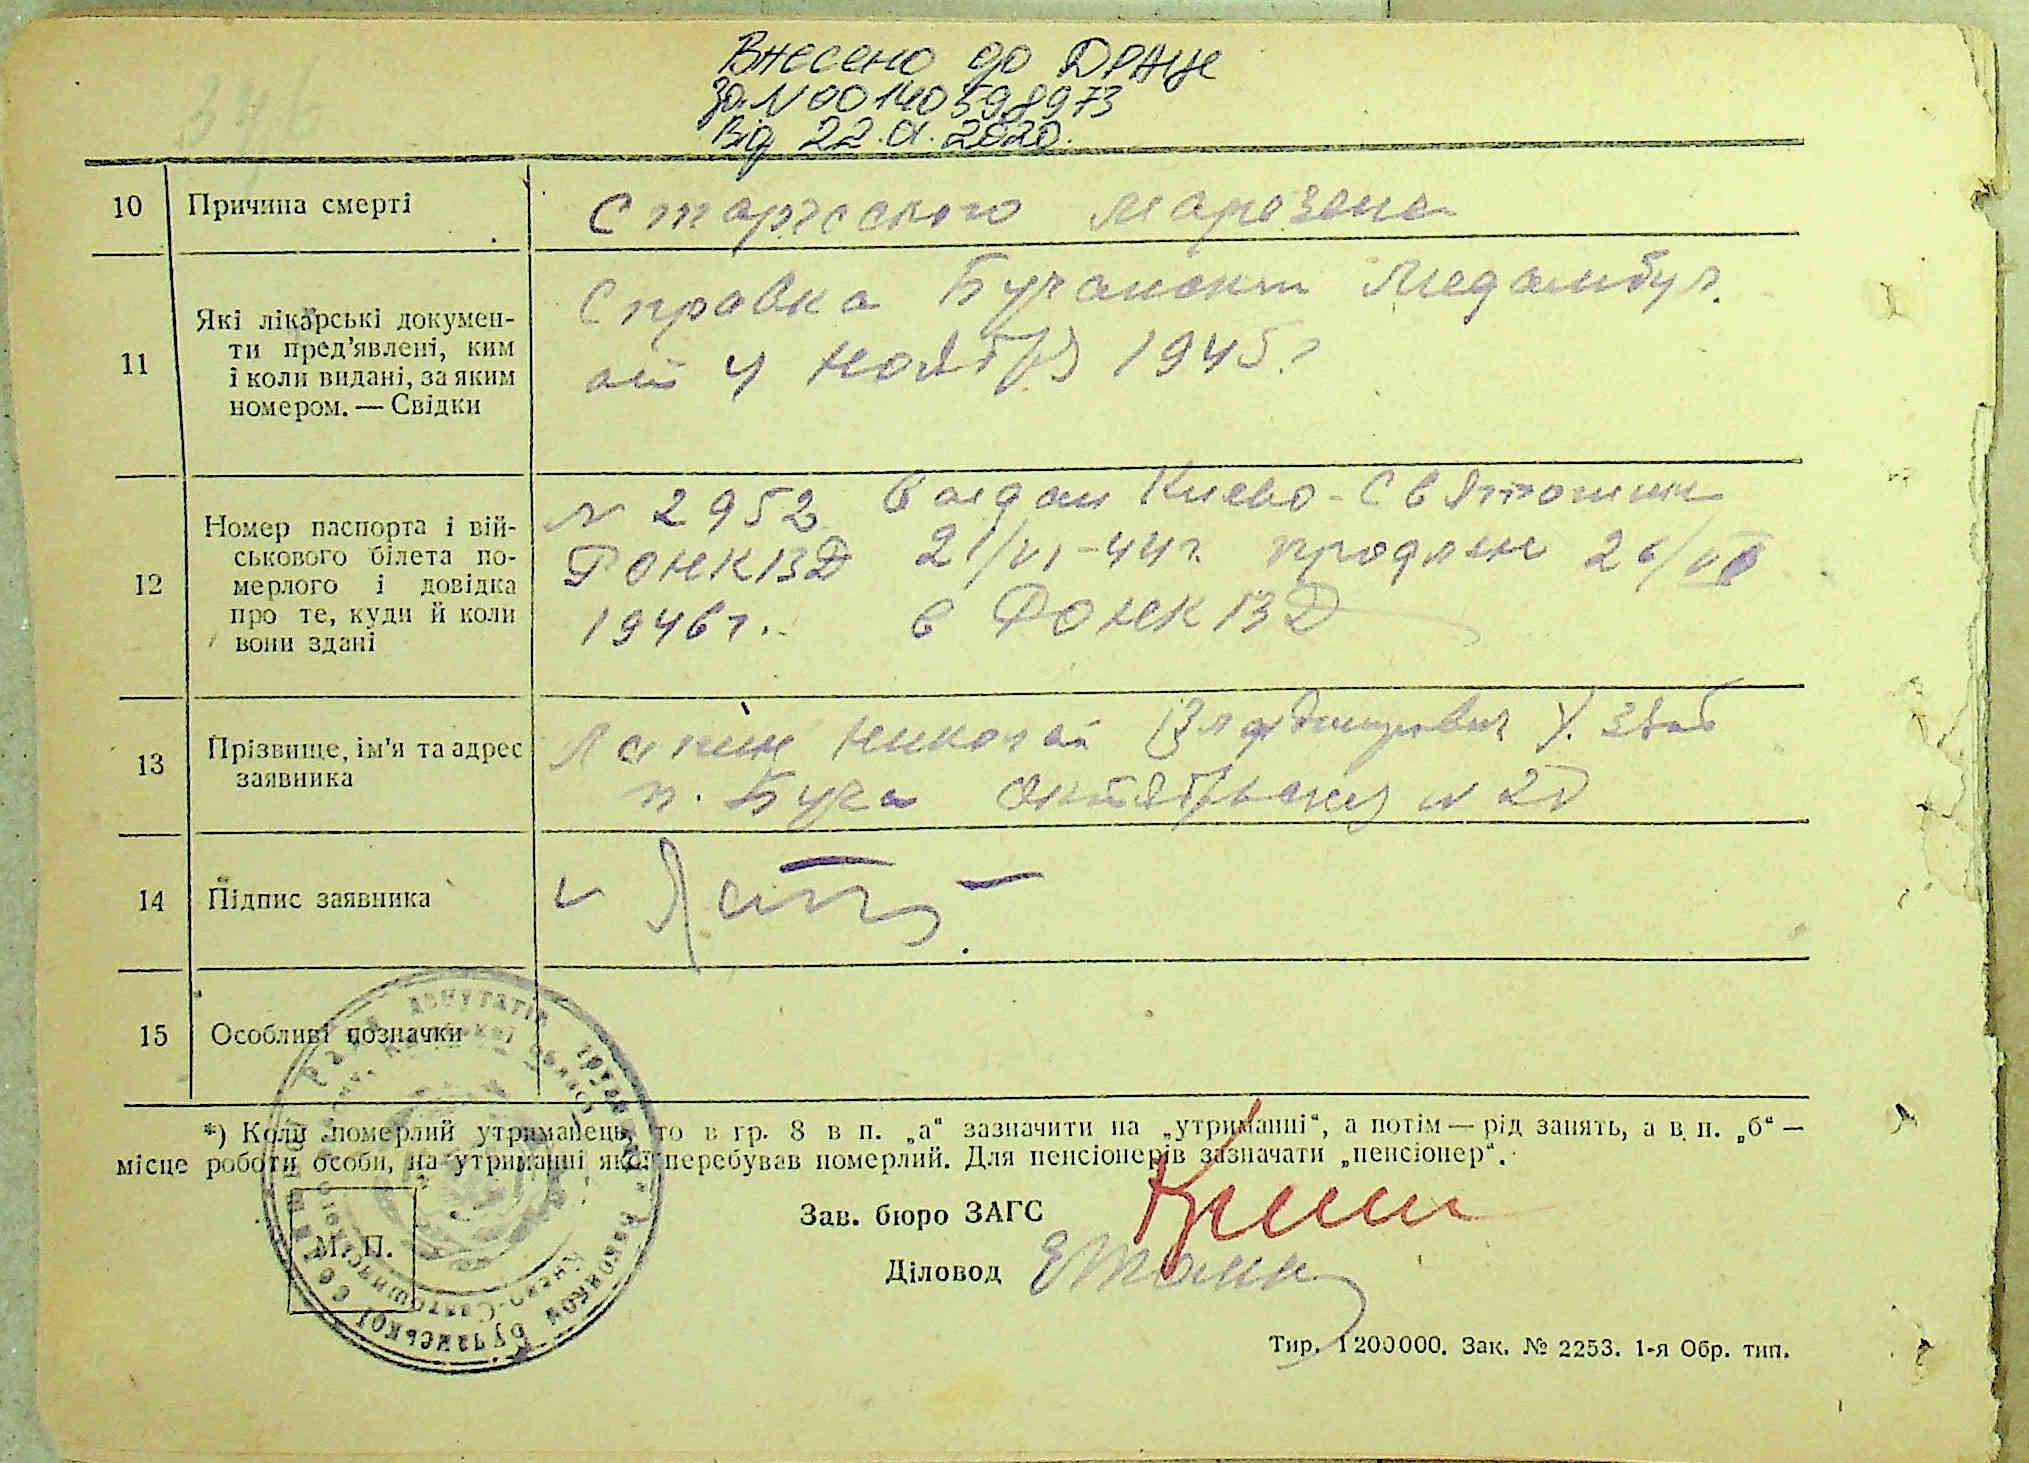 346
Внесено до ДРАЦС
за N 00140598973
від 22.01.2020.
10 Причина смерті
Старческого маразма
11 Які лікарські докумен-
ти пред'явлені, ким
і коли видані, за яким
номером. — Свідки
Справка Бучанск Медамбул.
от 4 ноября 1945 г
12 Номер паспорта і вій-
ськового білета по-
мерлого і довідка
про те, куди й коли
вони здані
N 2952 Выдан Киево-Святошин
РОНКВД 21/VI-44 г. продлен 26/VI
1946 г. в РОНКВД
13 Прізвище, ім'я та адрес
заявника
Николай Владимирович
п. Буча Октябрьская N 20
14 Підпис заявника
15 Особливі позначки
*) Коли померлий утриманець, то в гр. 8 в п. „а“ зазначити на „утриманні“, а потім — рід занять, а в п. „б“ —
місце роботи особи, на утриманні якої перебував померлий. Для пенсіонерів зазначати „пенсіонер“.
Зав. бюро ЗАГС
Діловод
М. П.
Рада депутатів трудящих Бучанської селищної
Києво-Святошинського району, Київської області
Тир. 1200000. Зак. № 2253. 1-я Обр. тип.